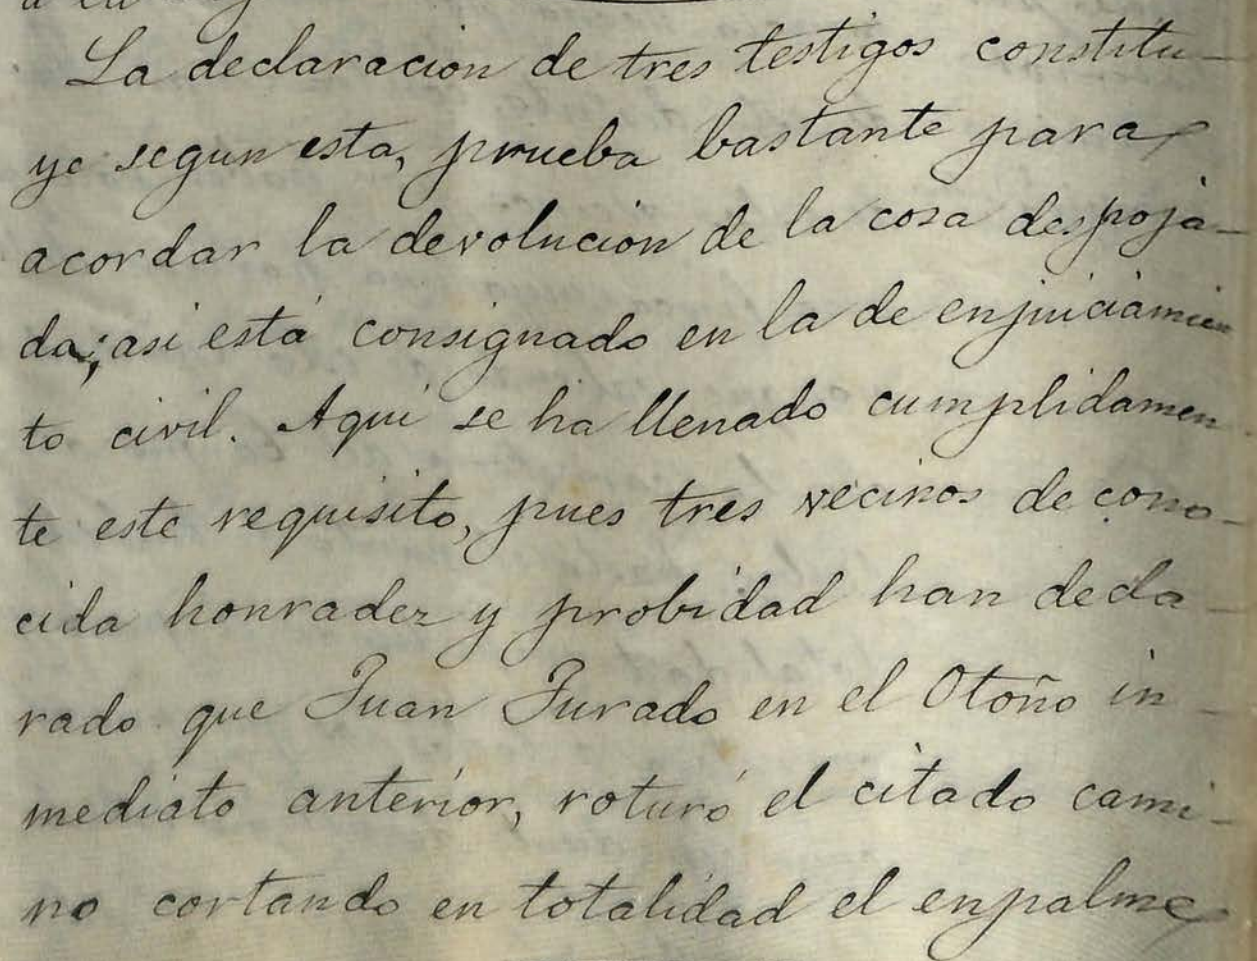 La declaracion de tres testigos constitu-
ye segun esta, prueba bastante para
acordar la devolucion de la cosa despoja-
da; asi está consignado en la de enjuiciamien
to civil. Aqui se ha llenado cumplidamen
te este requisito, pues tres vecinos de cono-
cida honradez y probidad han decla-
rado que Juan Jurado en el Otoño in-
mediato anterior, roturó el citado cami-
no cortando en totalidad el enpalme